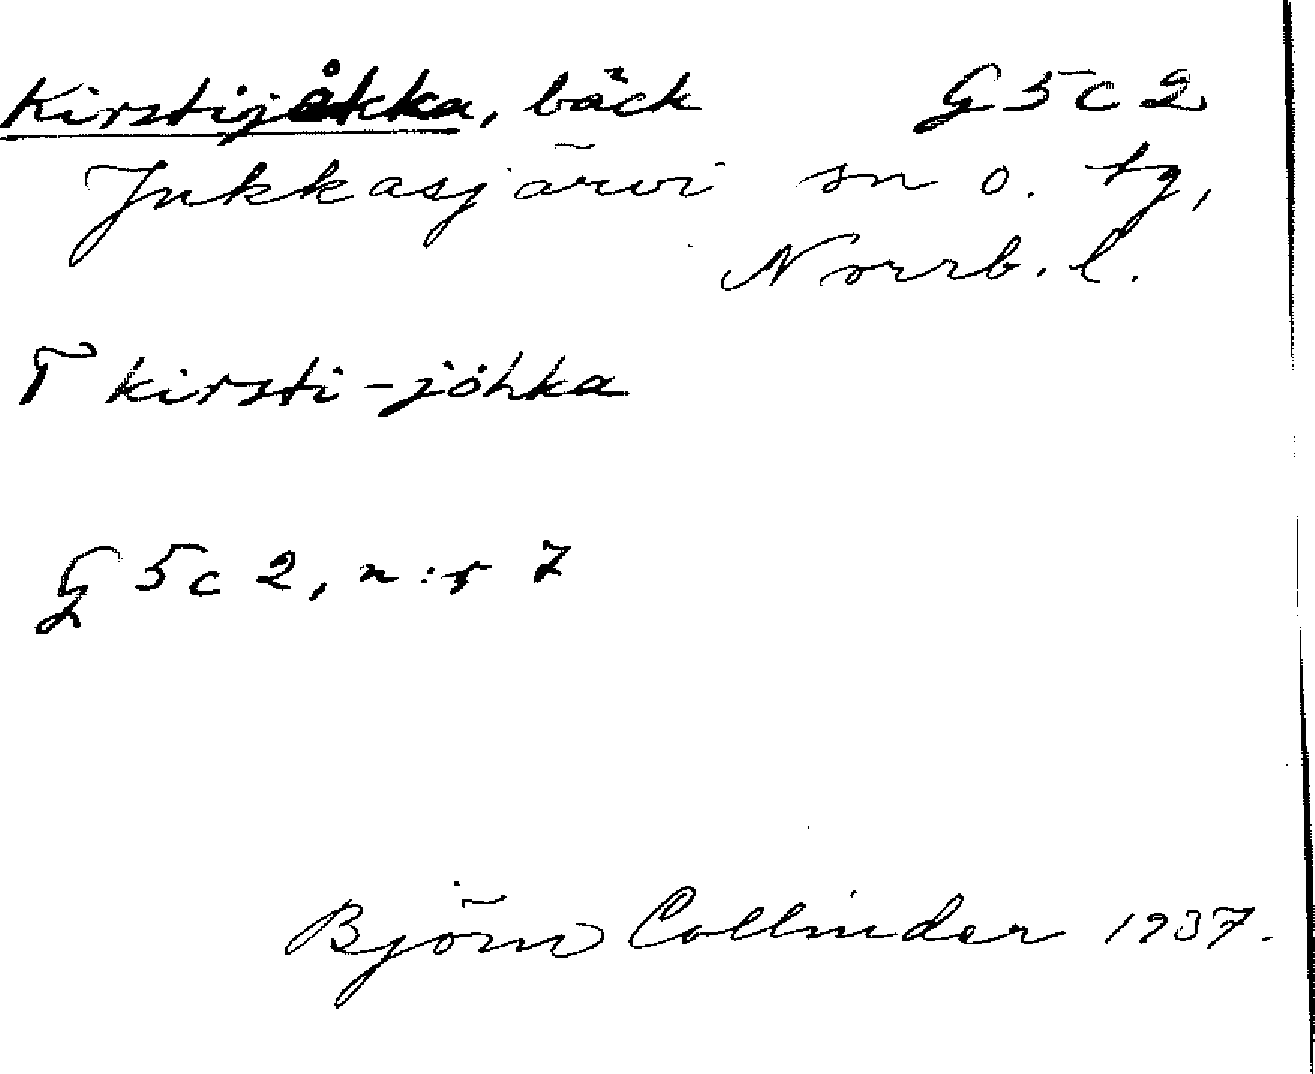 Kirstijåkka, bäck G5c2
Jukkasjärvi sn o. tg,
Norrb. l.
T kirsti-jöhka
G 5c 2, n:r 7
Björn Collinder 1937.